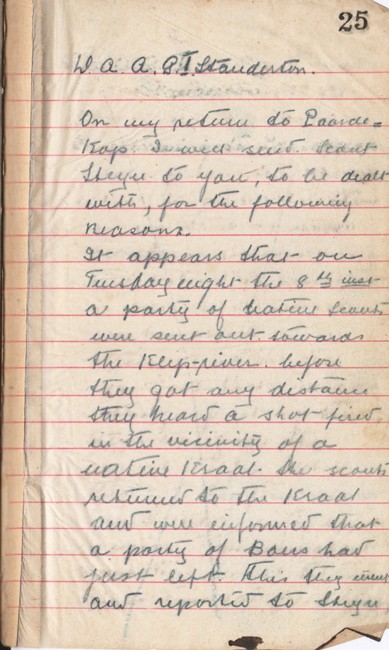 25
D A. A. G.I Standerton.
On my return to Paarde=
Kop I will send Scout
Steyn to you, to be dealt
with, for the following
reasons.
It appears that on
Tuesday night the 8th inst
a party of native Scouts
were sent out towards
the Klip-river. before
they got any distance
they heard a shot fired
in the vicinity of a
native Kraal. the scouts
returned to the Kraal
and were informed that
a party of Boers had
just left. This they
and reported to Steyn